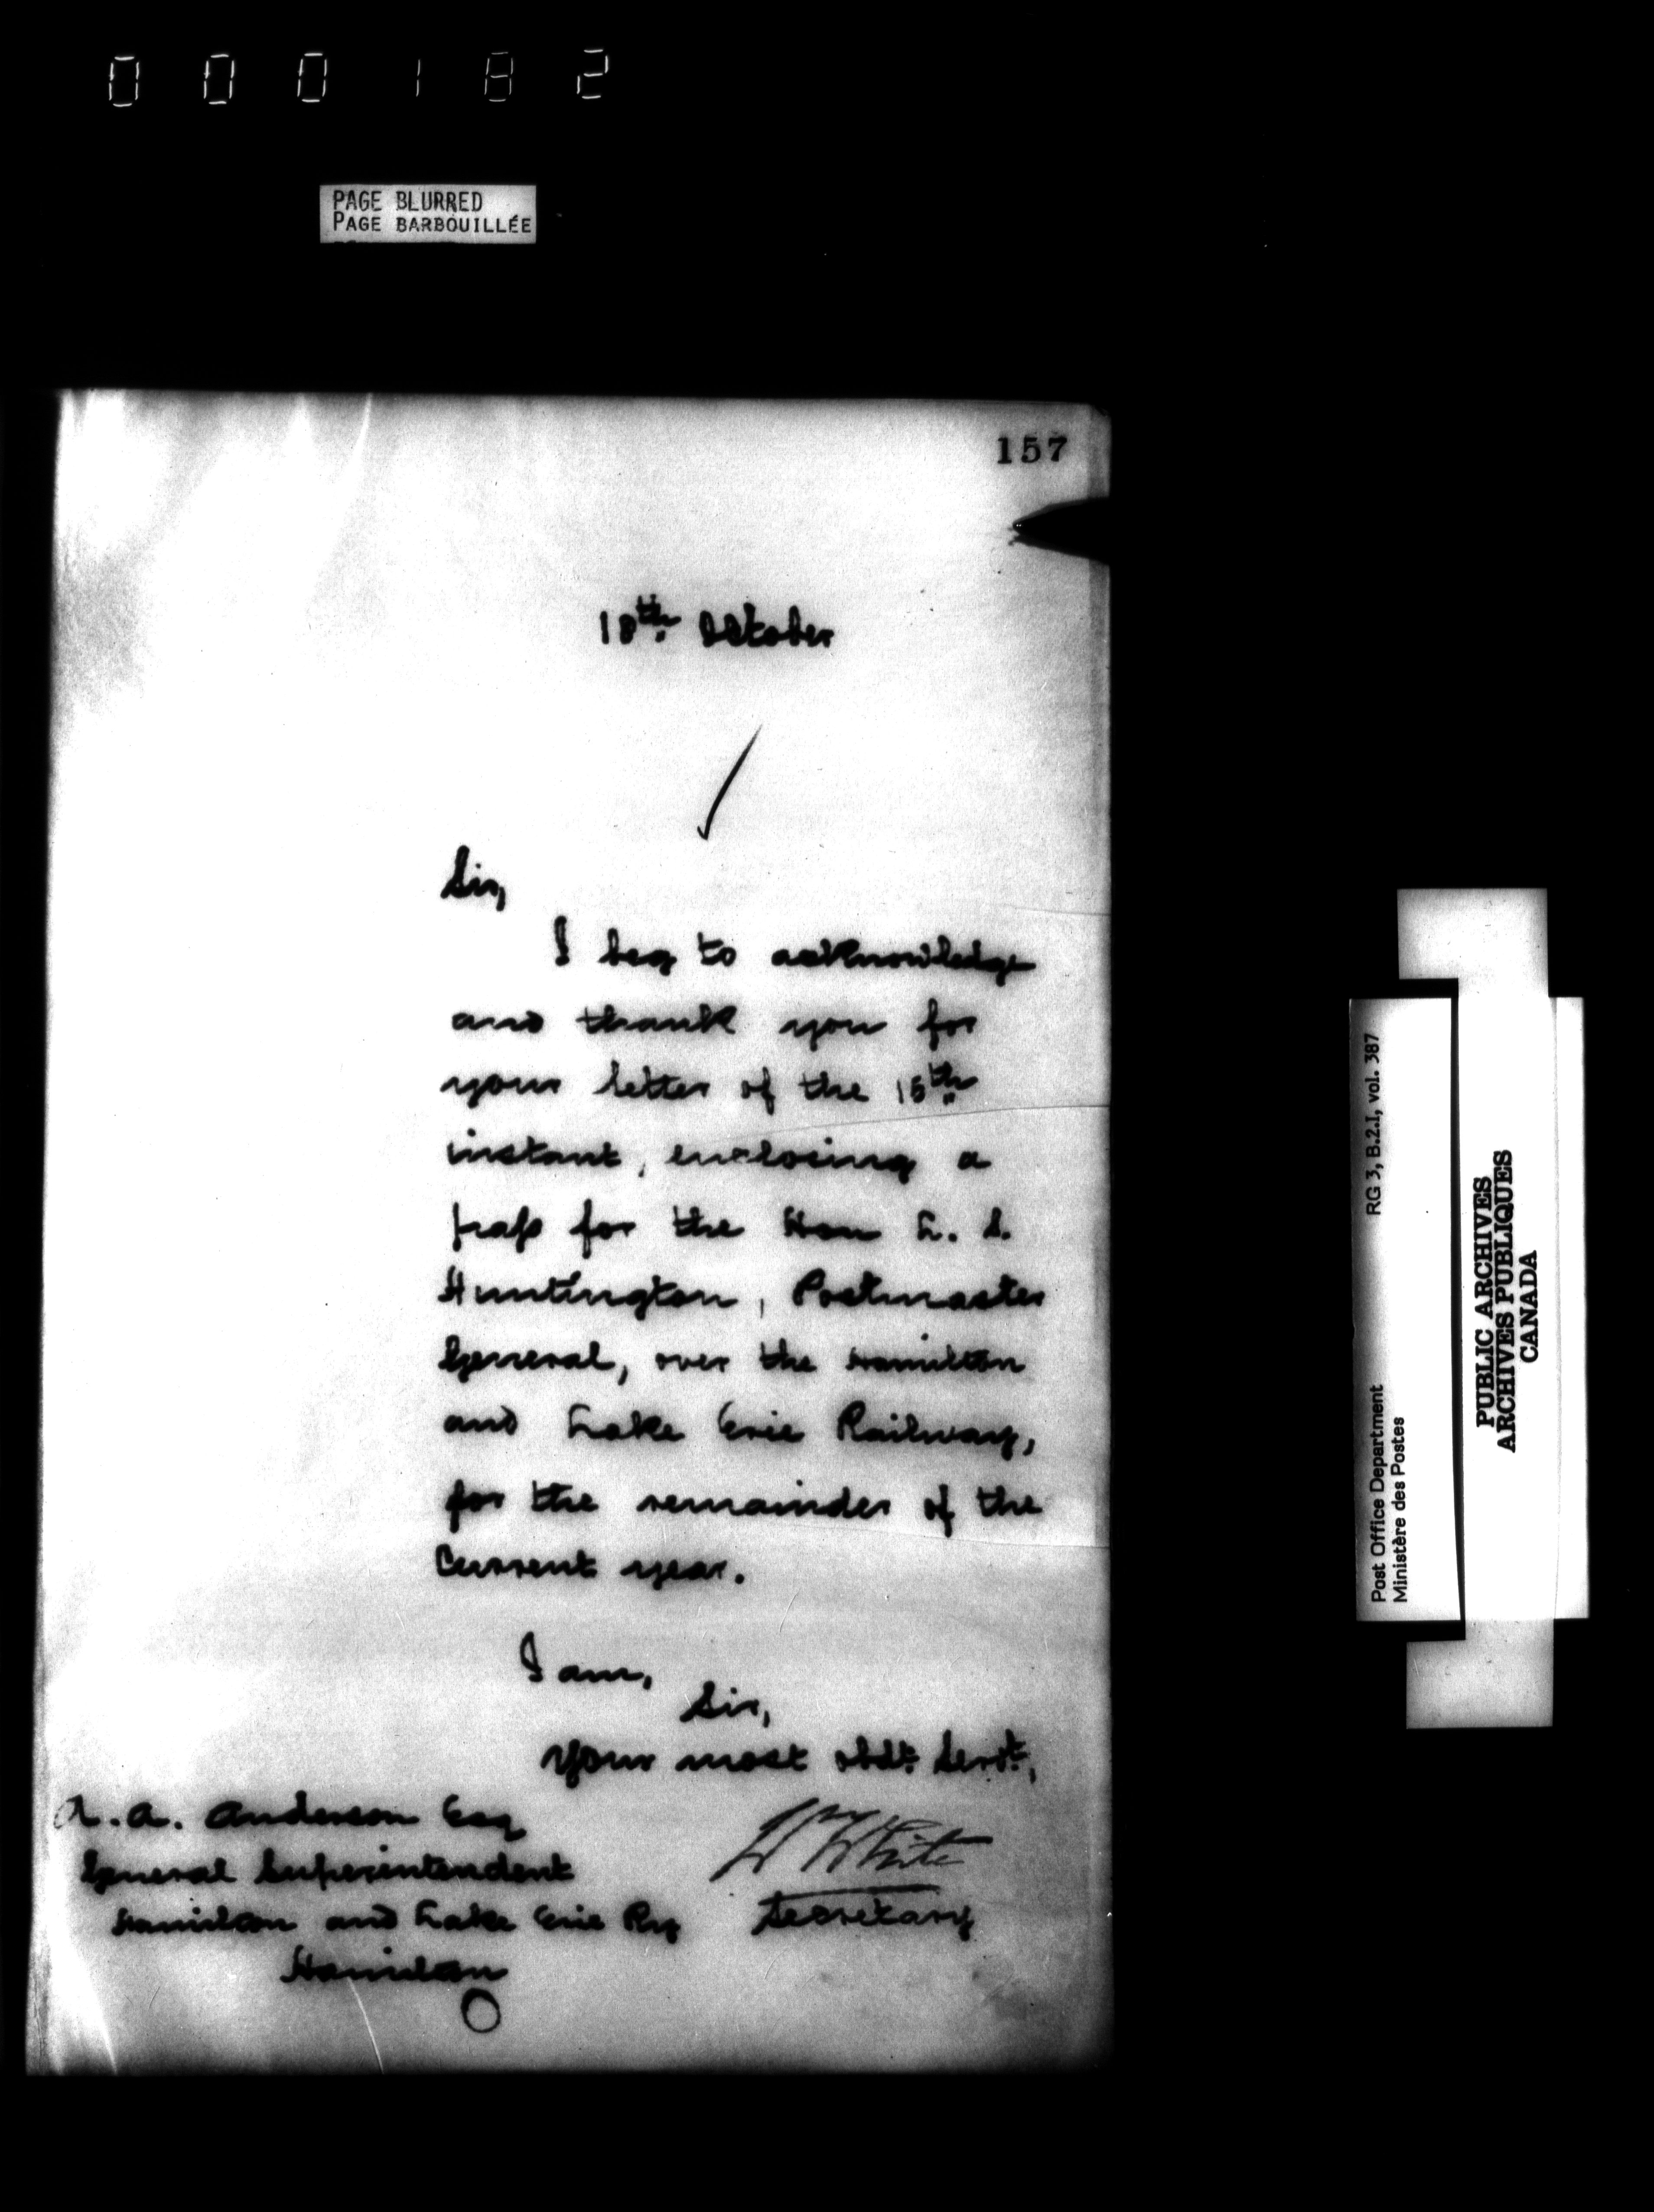 000182
PAGE BLURRED
PAGE BARBOUILLÉE
157
18th October
Sir,
I beg to acknowledge
and thank you for
your letter of the 15th
instant, enclosing a
pass for the Hon L. S.
Huntington, Postmaster
General, over the Hamilton
and Lake Erie Railway,
for the remainder of the
Current year.
I am,
Sir,
Your most obdt. Servt.,
A. Anderson Esq
General Superintendent
Hamilton and Lake Erie Ry
Hamilton
O
W White
Secretary
Post Office Department RG 3, B.2.I, vol. 387
Ministère des Postes
PUBLIC ARCHIVES
ARCHIVES PUBLIQUES
CANADA